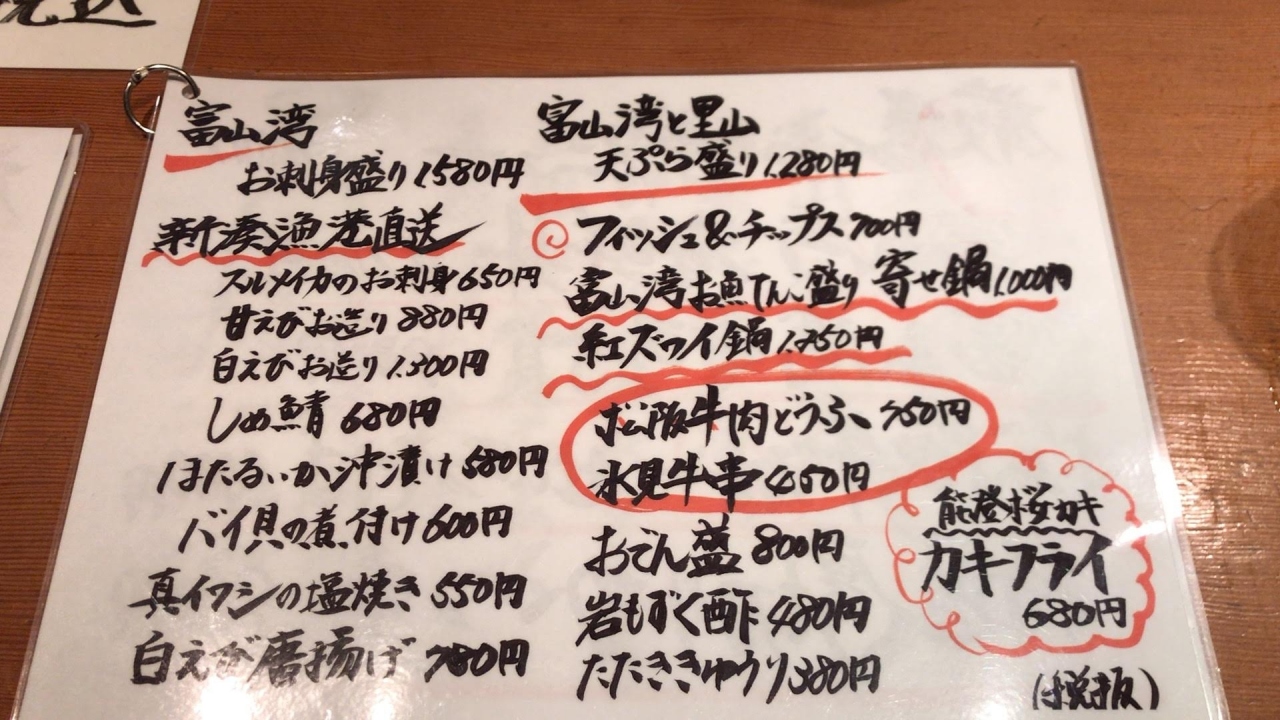 税込
富山湾
お刺身盛り 1,580円
新湊漁港直送
スルメイカのお刺身 650円
甘えびお造り 880円
白えびお造り 1,300円
しめ鯖 680円
ほたるいか沖漬け 580円
バイ貝の煮付け 600円
真イワシの塩焼き 550円
白えび唐揚げ 780円
富山湾と里山
天ぷら盛り 1,280円
フィッシュ&チップス 700円
富山湾お魚てんこ盛り 寄せ鍋 1,000円
紅ズワイ鍋 1,250円
松阪牛肉どうふ 750円
氷見牛串 450円
おでん盛 800円
岩もずく酢 480円
たたききゅうり 380円
能登桜カキ
カキフライ
680円
(税抜)